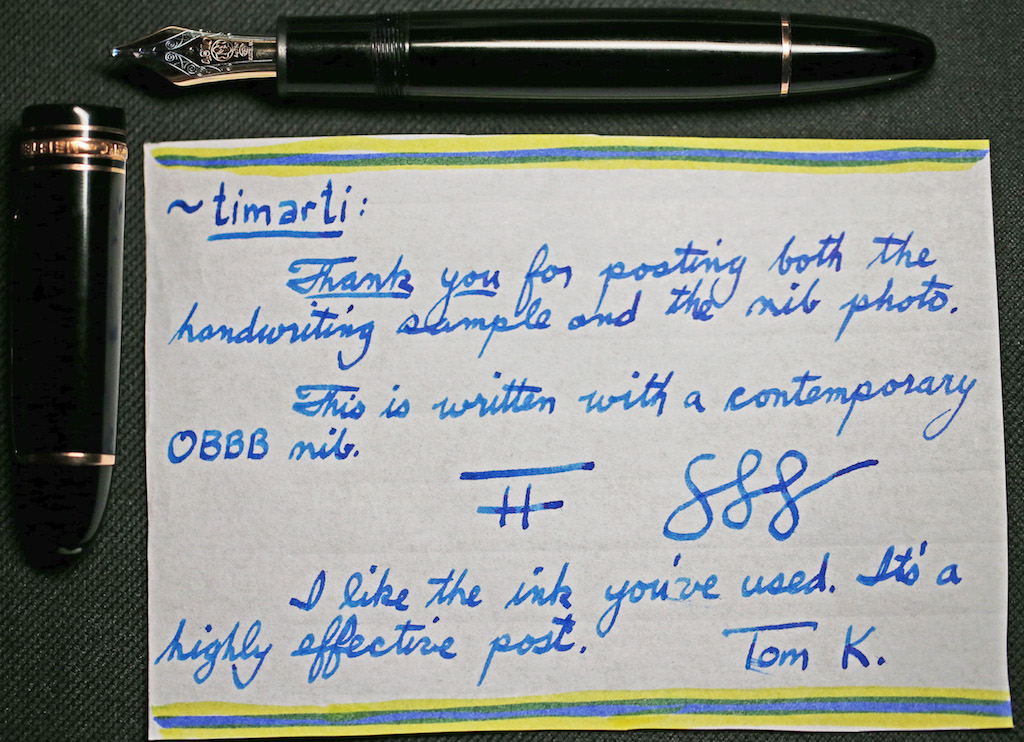 ~timarti:
Thank you for posting both the
handwriting sample and the nib photo.
This is written with a contemporary
OBBB nib.
I like the ink you've used. It's a
highly effective post.
Tom K.